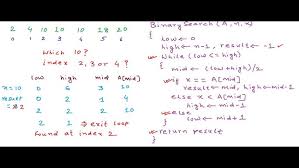 2 4 10 10 10 18 20
0 1 2 3 4 5 6
Which 10?
index 2, 3 or 4?
low high mid A[mid]
x=10 0 6 3 10
result 0 2 1 4
2 2 2 10
2 1 → exit loop
found at index 2
Binary Search (A, n, x)
{
low ← 0
high ← n-1, result ← -1
While (low <= high)
{
mid ← (low+high)/2
if x == A[mid]
result ← mid, high ← mid-1
else x < A[mid]
high ← mid-1
else
low ← mid+1
}
return result
}